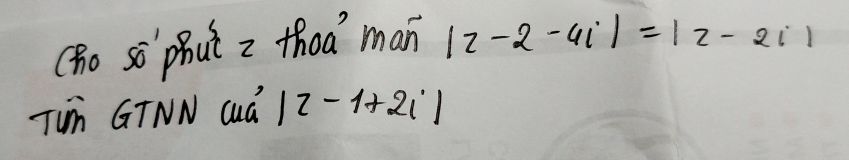 Cho số phức z thoả mãn |z - 2 - 4i| = |z - 2i|
Tìm GTNN của |z - 1 + 2i|